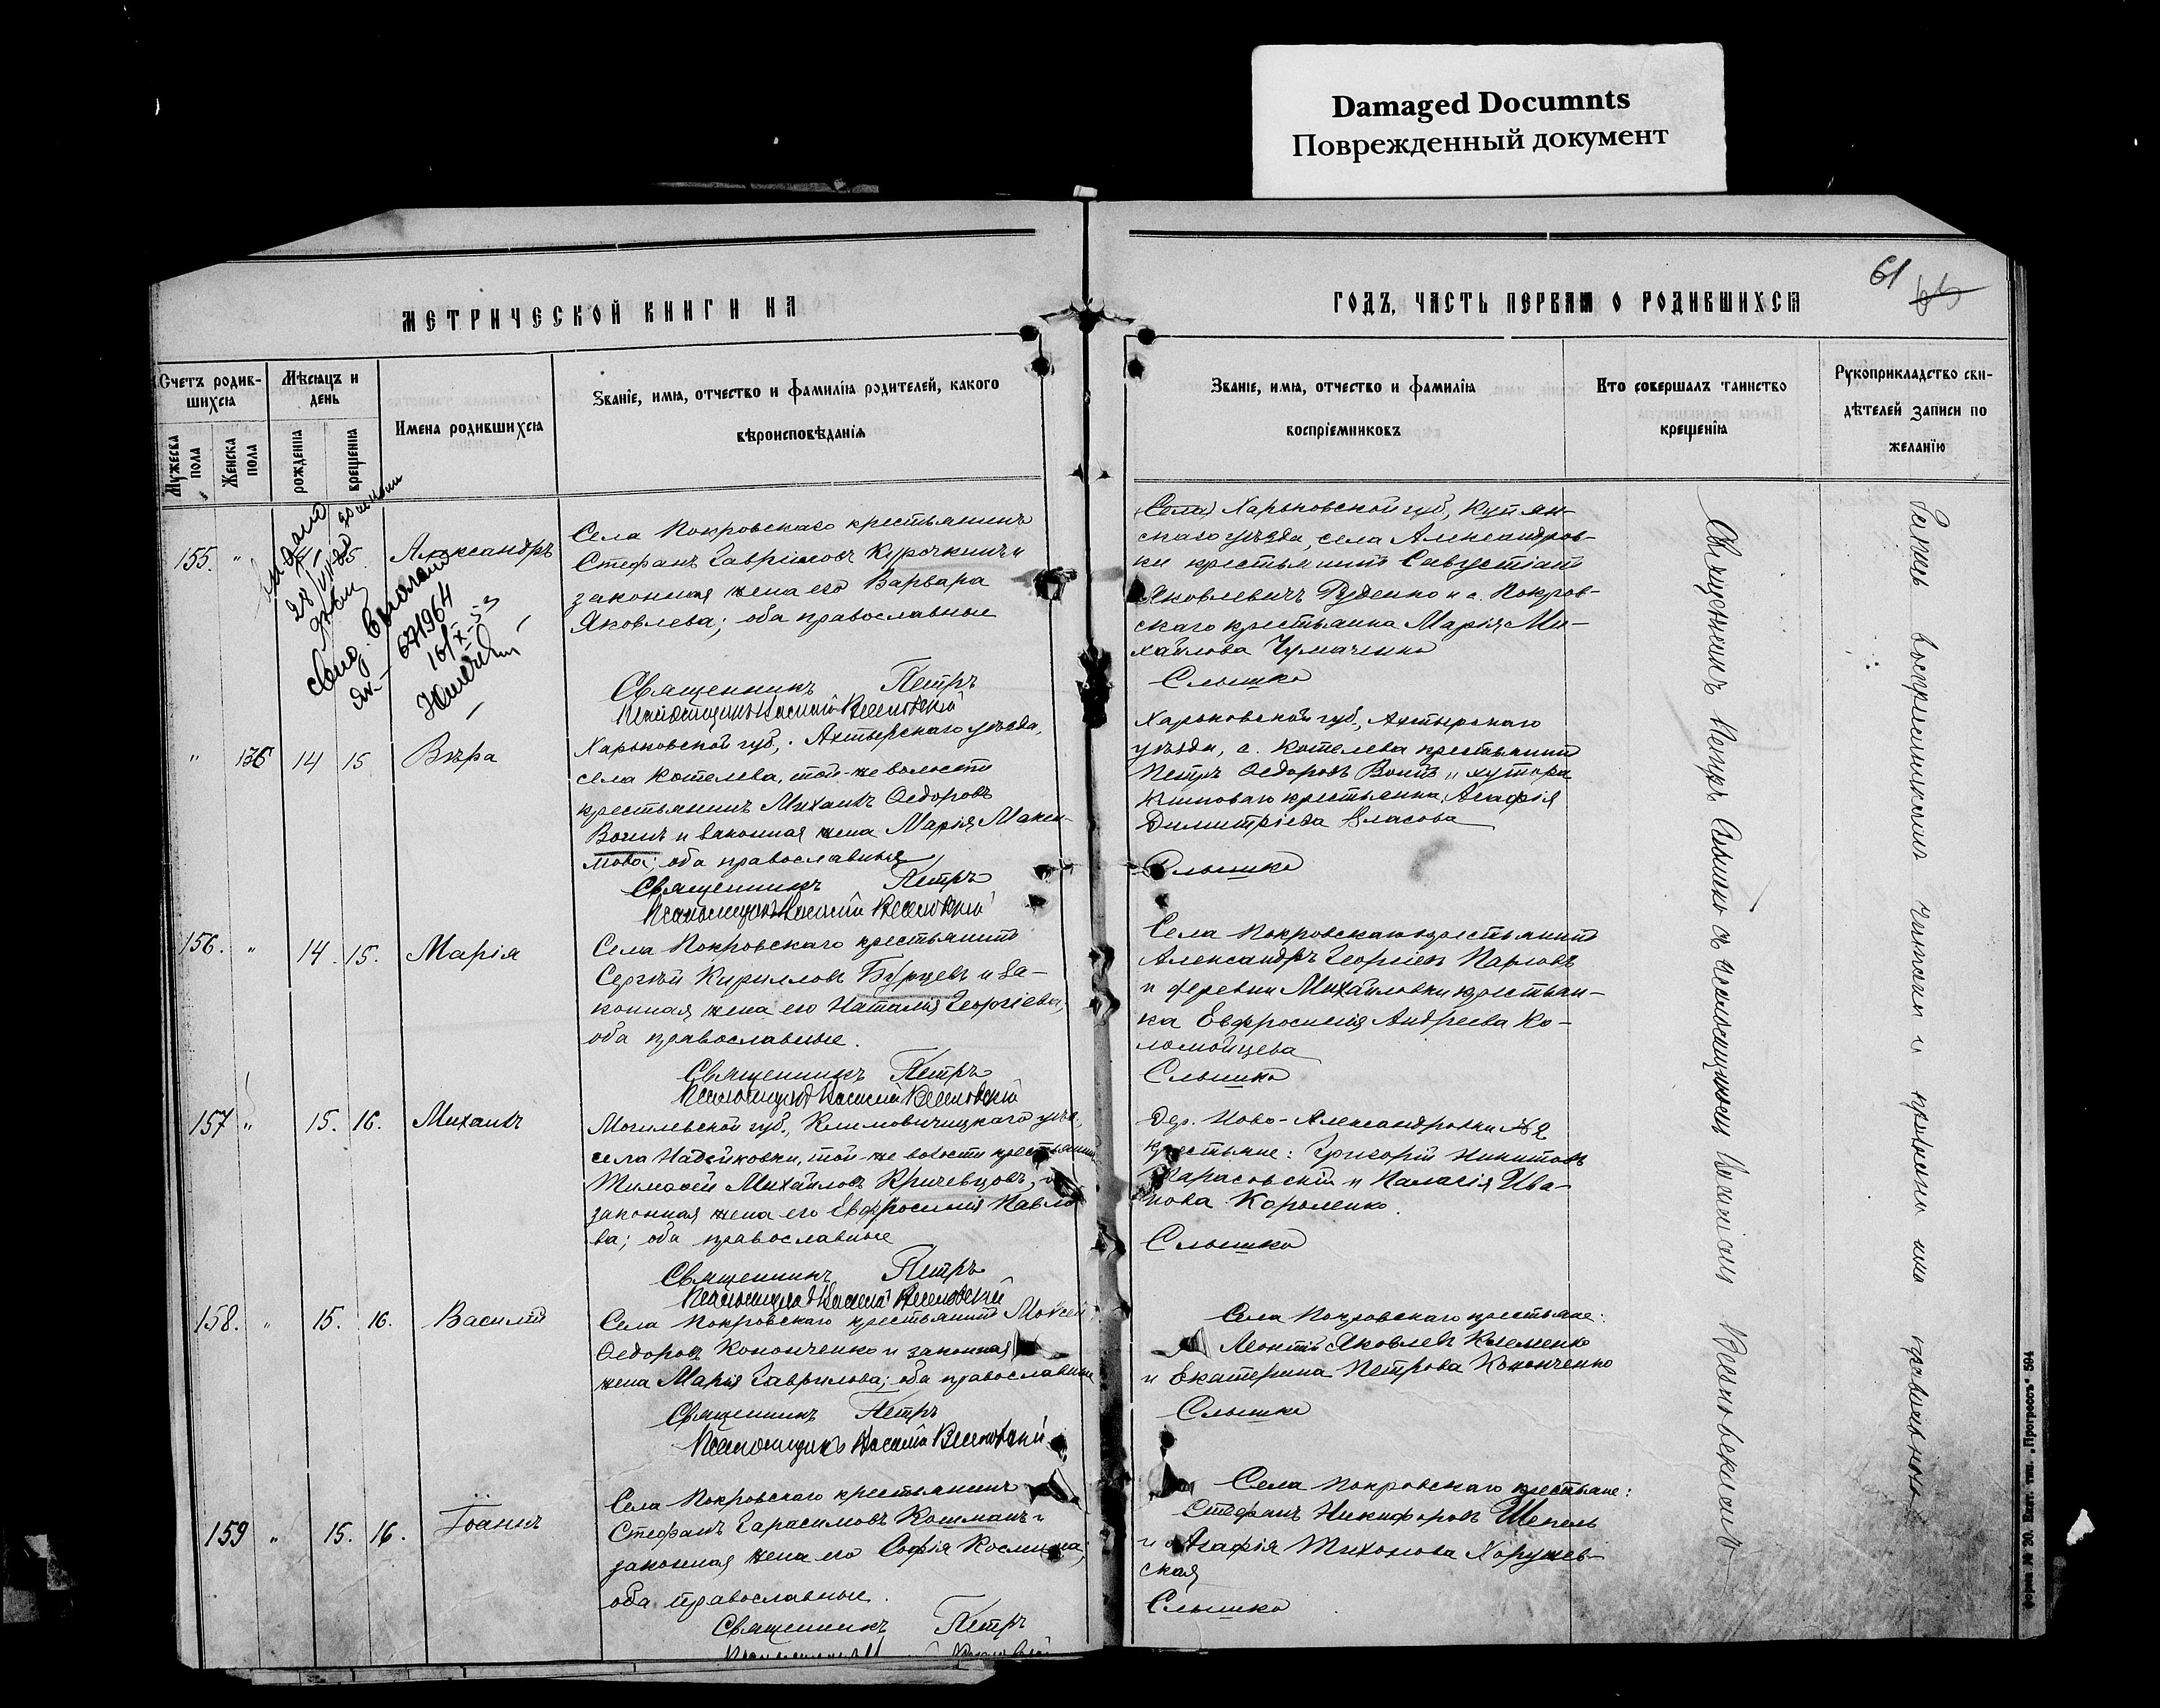 Damaged Documnts
Поврежденный документ
61
МЕТРИЧЕСКОЙ КНИГИ НА
ГОДЪ, ЧАСТЬ ПЕРВАЯ О РОДИВШИХСЯ
Счетъ родив-
шихся
Мужеска пола
Женска пола
Мѣсяцъ и
день
рожденія
крещенія
Имена родившихся
Званіе, имя, отчество и фамилія родителей, какого
вѣроисповѣданія
Званіе, имя, отчество и фамилія
воспріемниковъ
Кто совершалъ таинство
крещенія
Рукоприкладство сви-
дѣтелей записи по
желанію
155. " Александръ
Села Покровскаго крестьянинъ
Стефанъ Гавріиловъ Курочкинъ и
законная жена его Варвара
Яковлева; оба православные
Священникъ Петръ
Псаломщикъ Василій
Харьковской губ., Купян-
скаго уѣзда, села Александров-
ки крестьянинъ
Яковлевичъ Руденко и с. Покров-
скаго крестьянка Марія Ми-
хайлова Чумаченко
Слышко
28/VII
671964
" 136 14 15 Вѣра
Харьковской губ., Ахтырскаго уѣзда,
села Котелева, той-же волости
крестьянинъ Михаилъ Ѳедоровъ
и законная жена Марія Макси-
мова; оба православные
Священникъ Петръ
Псаломщикъ Василій
Харьковской губ., Ахтырскаго
уѣзда, с. Котелева крестьянинъ
Петръ Ѳедоровъ и хутора
крестьянка Агафія
Димитріева Власова
Слышко
156. " 14. 15. Марія
Села Покровскаго крестьянинъ
Сергѣй Кирилловъ Бурцевъ и за-
конная жена его Наталія Георгіева;
оба православные.
Священникъ Петръ
Псаломщикъ Василій
Села Покровскаго крестьянинъ
Александръ Георгіевъ Павловъ
и деревни Михайловки крестьян-
ка Евфросинія Андреева Ко-
ломойцева
Слышко
157 " 15. 16. Михаилъ
Могилевской губ., Климовичицкаго уѣз.,
села Надѣйковки, той-же волости крестьянинъ
Тимоѳей Михайловъ Кричевцовъ, и
законная жена его Евфросинія Павло
ва; оба православные
Священникъ Петръ
Псаломщикъ Василій
Дер. Ново-Александровки № 2
крестьяне: Григорій Никитовъ
Тарасовскій и Пелагія Ива-
нова Короленко.
Слышко
158. " 15. 16. Василій
Села Покровскаго крестьянинъ Моисей
Ѳедоровъ Кононченко и законная
жена Марія Гаврилова; оба православные
Священникъ Петръ
Псаломщикъ Василій
Села Покровскаго крестьяне:
Леонтій Яковлевъ Клеменко
и Екатерина Петрова Кононченко
Слышко
159 " 15. 16. Іоаннъ
Села Покровскаго крестьянинъ
Стефанъ Гарасимовъ Кошманъ и
законная жена его Софія Космина;
оба православные.
Священникъ Петръ
Села Покровскаго крестьяне:
Стефанъ Никифоровъ Шепель
и Агафія Тихонова Хоружев-
ская
Слышко
Священникъ Петръ Слышко съ псаломщикомъ Василіемъ
форма № 20. Екат. тип. „Прогрессъ" 594